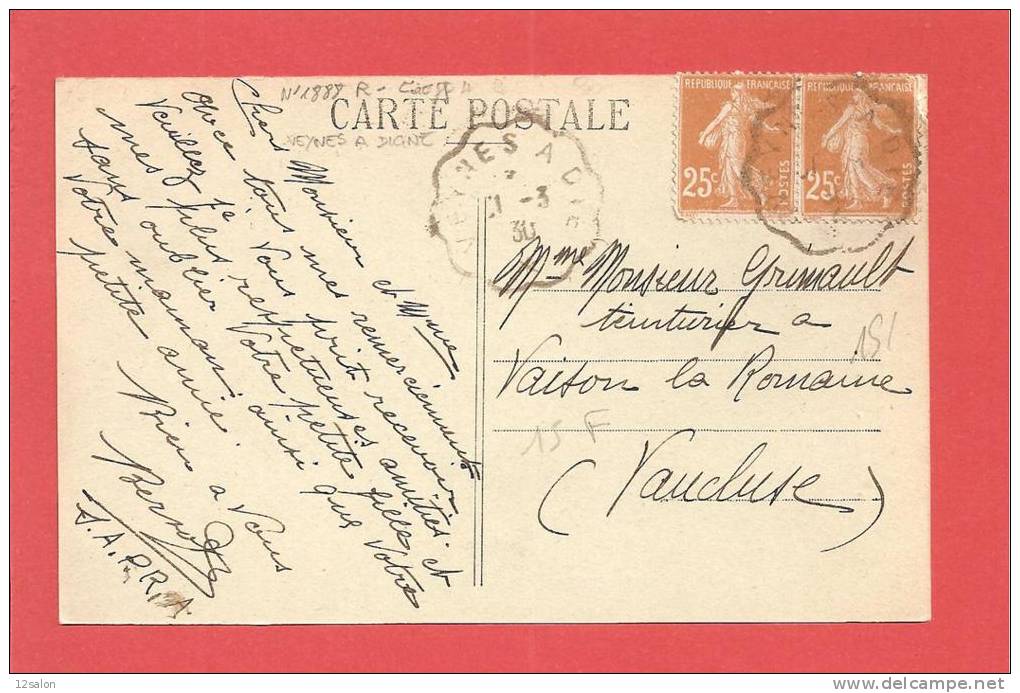 N° 1888 R -
CARTE POSTALE
VEYNES A DIGNE
VEYNES A DIG
21 -3
30
REPUBLIQUE FRANÇAISE
25c
POSTES
REPUBLIQUE FRANÇAISE
25c
POSTES
Cher Monsieur et Mme
avec tous mes remerciements
Veuillez je Vous prie recevoir
mes plus respectueuses amitiés et
sans oublier Votre petite fille
Votre maman ainsi que Votre
petite amie.
Bien a Vous
S.A.P.R.A.
Mme Monsieur Grimault
teinturier a
Vaison la Romaine
(Vaucluse)
15/
15 F
© 12salon
www.delcampe.net